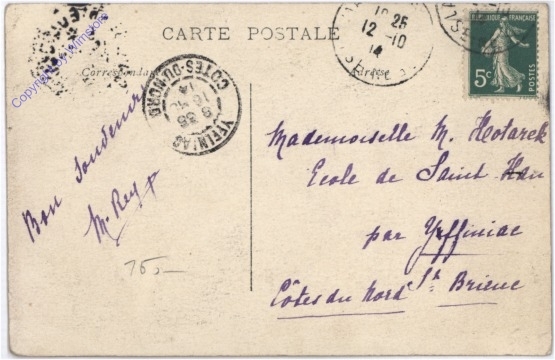 CARTE POSTALE
Correspondance
Adresse
Bon Souvenir
M. Rey
75.-
Mademoiselle M. Hotarek
Ecole de Saint
par Yffiniac
St Brieuc
Côtes du Nord
YFFINIAC
COTES-DU-NORD
8 35
16 -10
14
10 25
12 -10
14
REPUBLIQUE FRANÇAISE
5c
POSTES
Copyright by Wilmslore